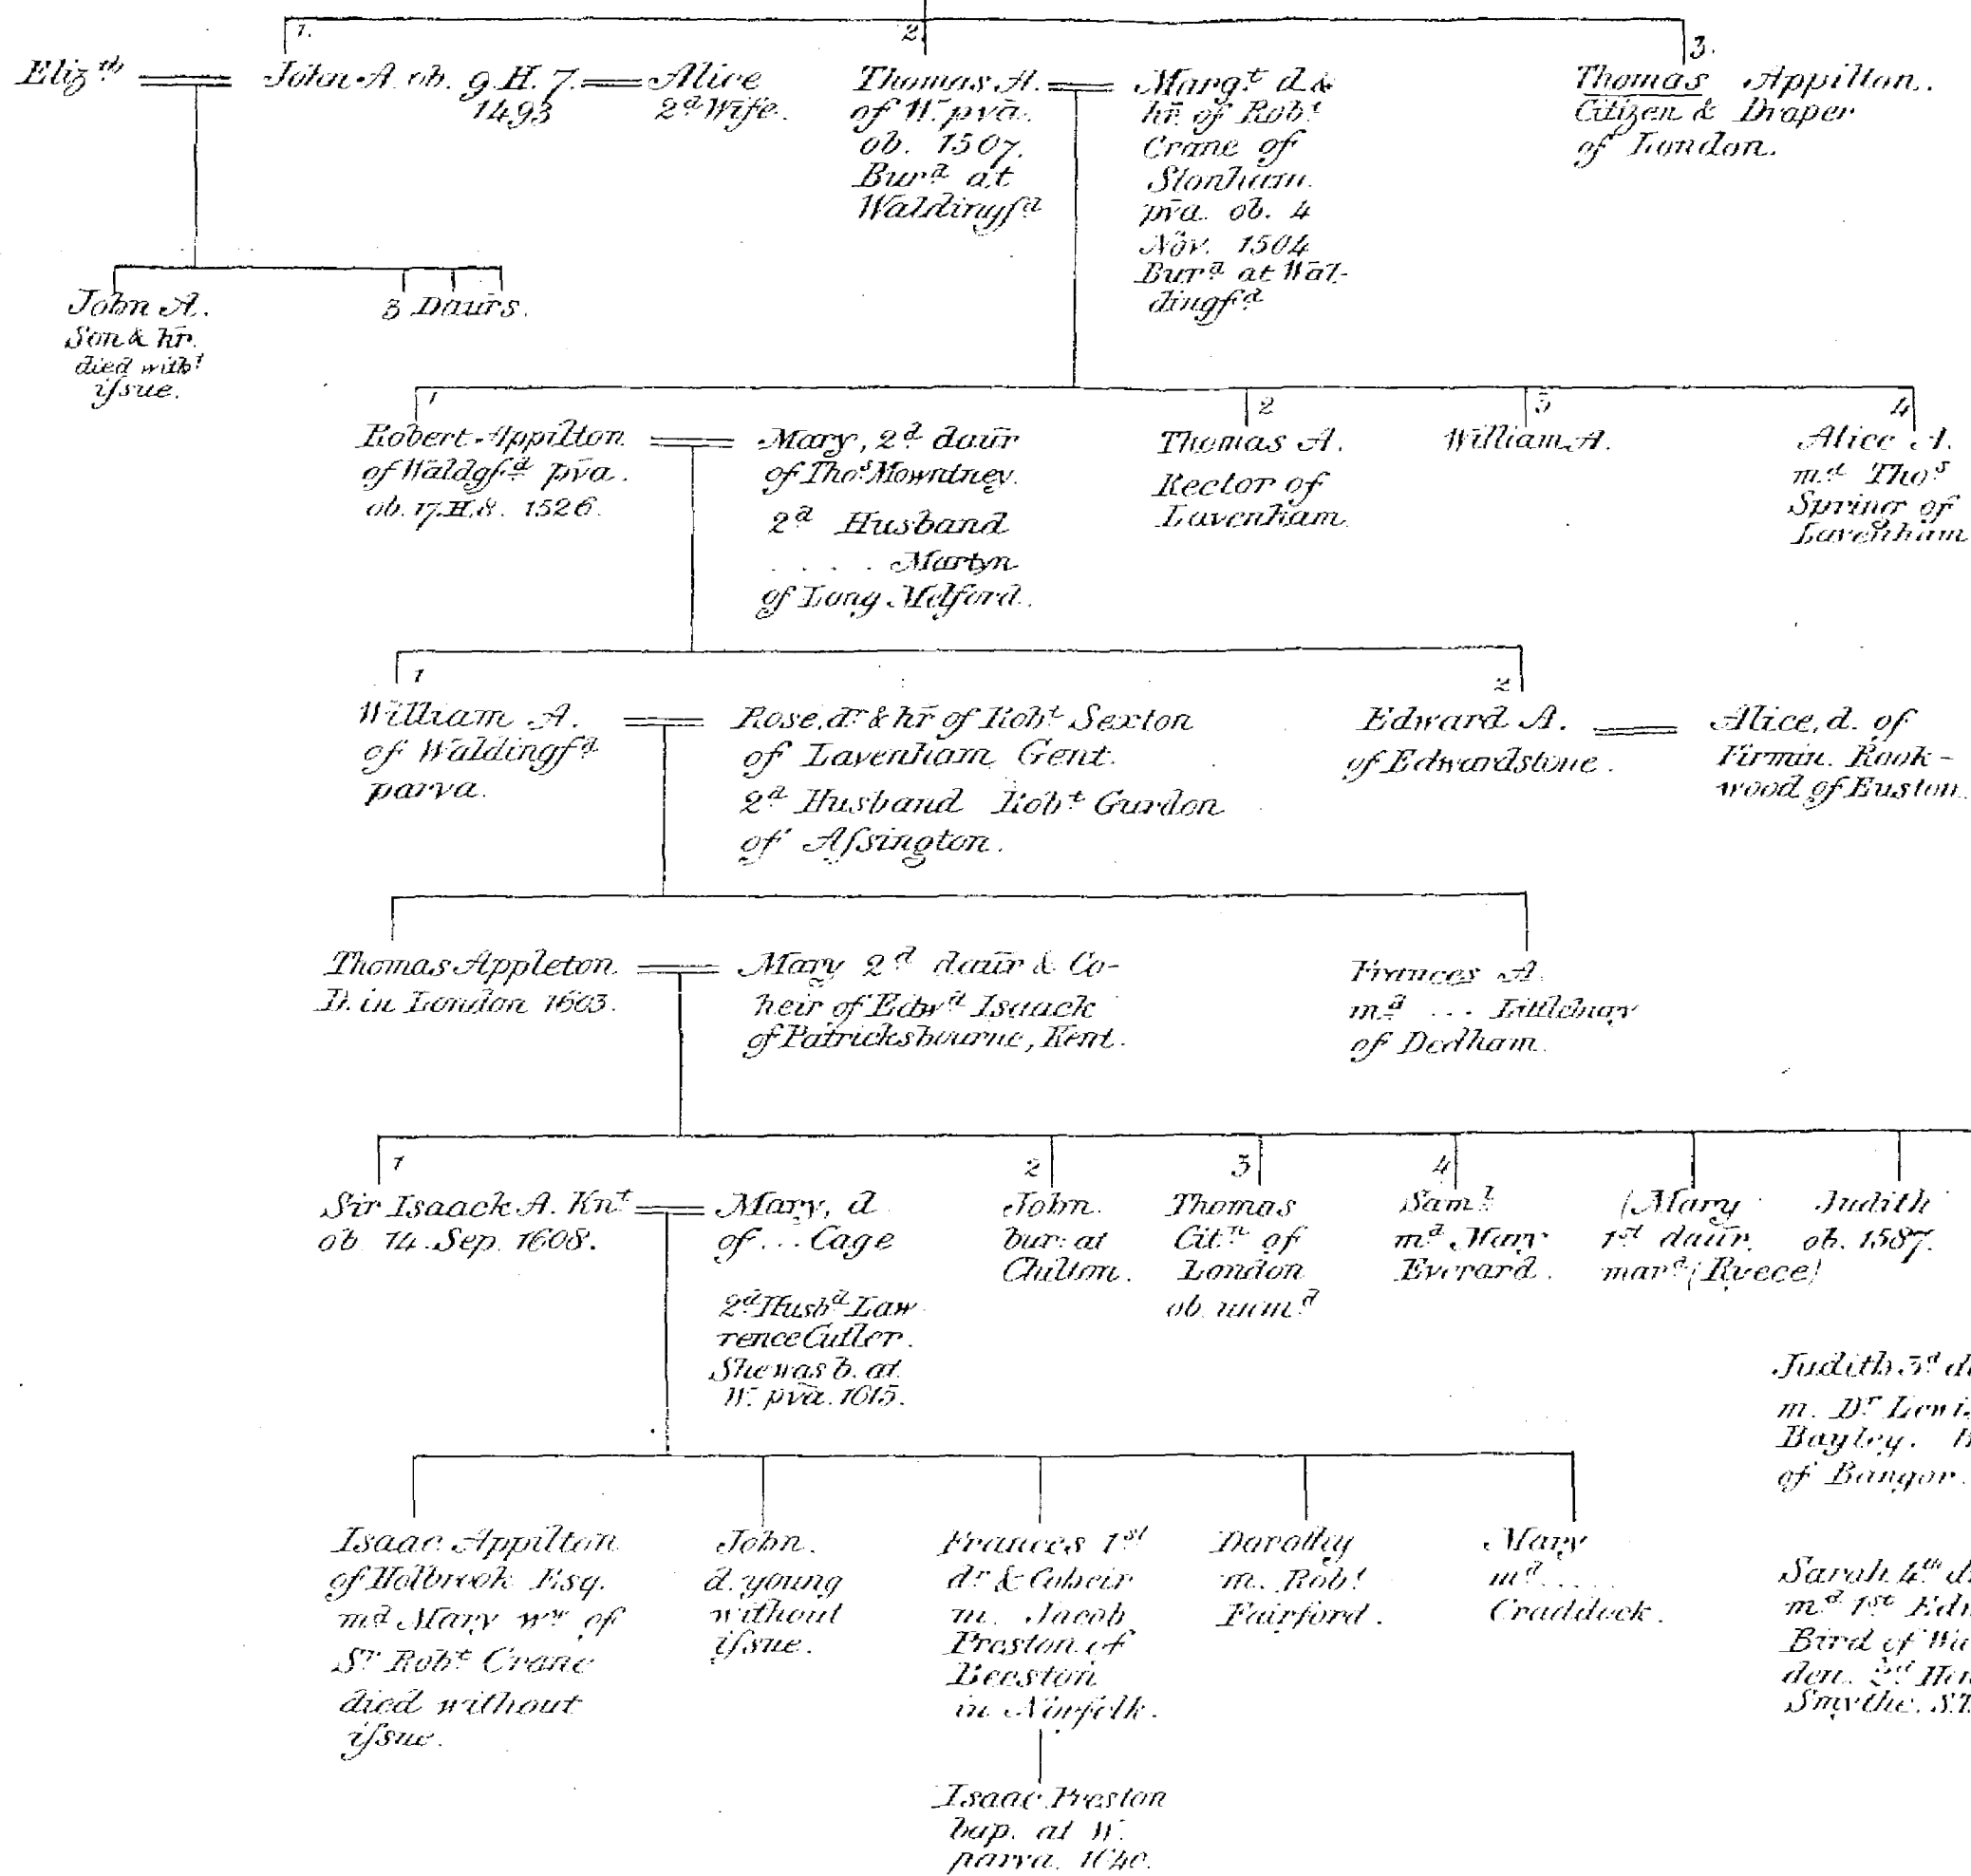 1.
2.
3.
Eliz.th
John A. ob. 9. H. 7.
1493
Alice
2d Wife.
Thomas A.
of W. pva.
ob. 1507.
Burd at
Waldingfd
Margt d. &
hr. of Robt
Crane of
Stonham.
pva. ob. 4
Nov. 1504
Burd at Wal-
dingfd
Thomas Appilton.
Citizen & Draper
of London.
John A.
Son & hr.
died witht
iſsue.
3 Daurs.
1
2
3
4
Robert Appilton
of Waldgfd pva.
ob. 17. H. 8. 1526.
Mary, 2d daur
of Thos Mowntney.
2d Husband
. . . . Martyn
of Long Melford.
Thomas A.
Rector of
Lavenham.
William A.
Alice A.
md Thos
Spring of
Lavenham
1
2
William A.
of Waldingfd
parva.
Rose, dr & hr of Robt Sexton
of Lavenham Gent.
2d Husband Robt Gurdon
of Aſsington.
Edward A.
of Edwardstone.
Alice, d. of
Firmin. Rook-
wood of Euston.
Thomas Appleton
D. in London 1603.
Mary 2d daur & Co-
heir of Edwd Isaack
of Patricksbourne, Kent.
Frances A.
md ... Littlebury
of Dedham.
1
2
3
4
Sir Isaack A. Knt
ob. 14. Sep. 1608.
Mary, d
of ... Cage
2d Husbd Law
rence Cutler.
She was b. at
W. pva. 1615.
John.
bur: at
Chilton.
Thomas
Citn of
London
ob. unmd
Saml
md Mary
Everard.
(Mary
1st daur.
mard (Ryece)
Judith
ob. 1587.
Judith 3d d
m. Dr Lewi
Bayley. B
of Bangor.
Sarah 4th d
md 1st Ed
Bird of Wa
den. 2d Hen
Smythe. S.T.
Isaac Appilton
of Holbrook Esq.
md Mary wr of
Sr Robt Crane
died without
iſsue.
John.
d. young
without
iſsue.
Frances 1st
dr & Coheir
m. Jacob
Preston of
Beeston
in Norfolk.
Dorothy
m. Robt
Fairford.
Mary
md .....
Craddock.
Isaac Preston
bap. at W.
parva. 1640.